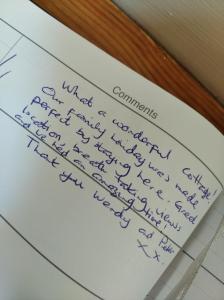 Comments
What a wonderful cottage!
Our family holiday was made
perfect by staying here. Great
location, breath taking views
and we had an amazing time!
Thank you Wendy and Peter
xx.